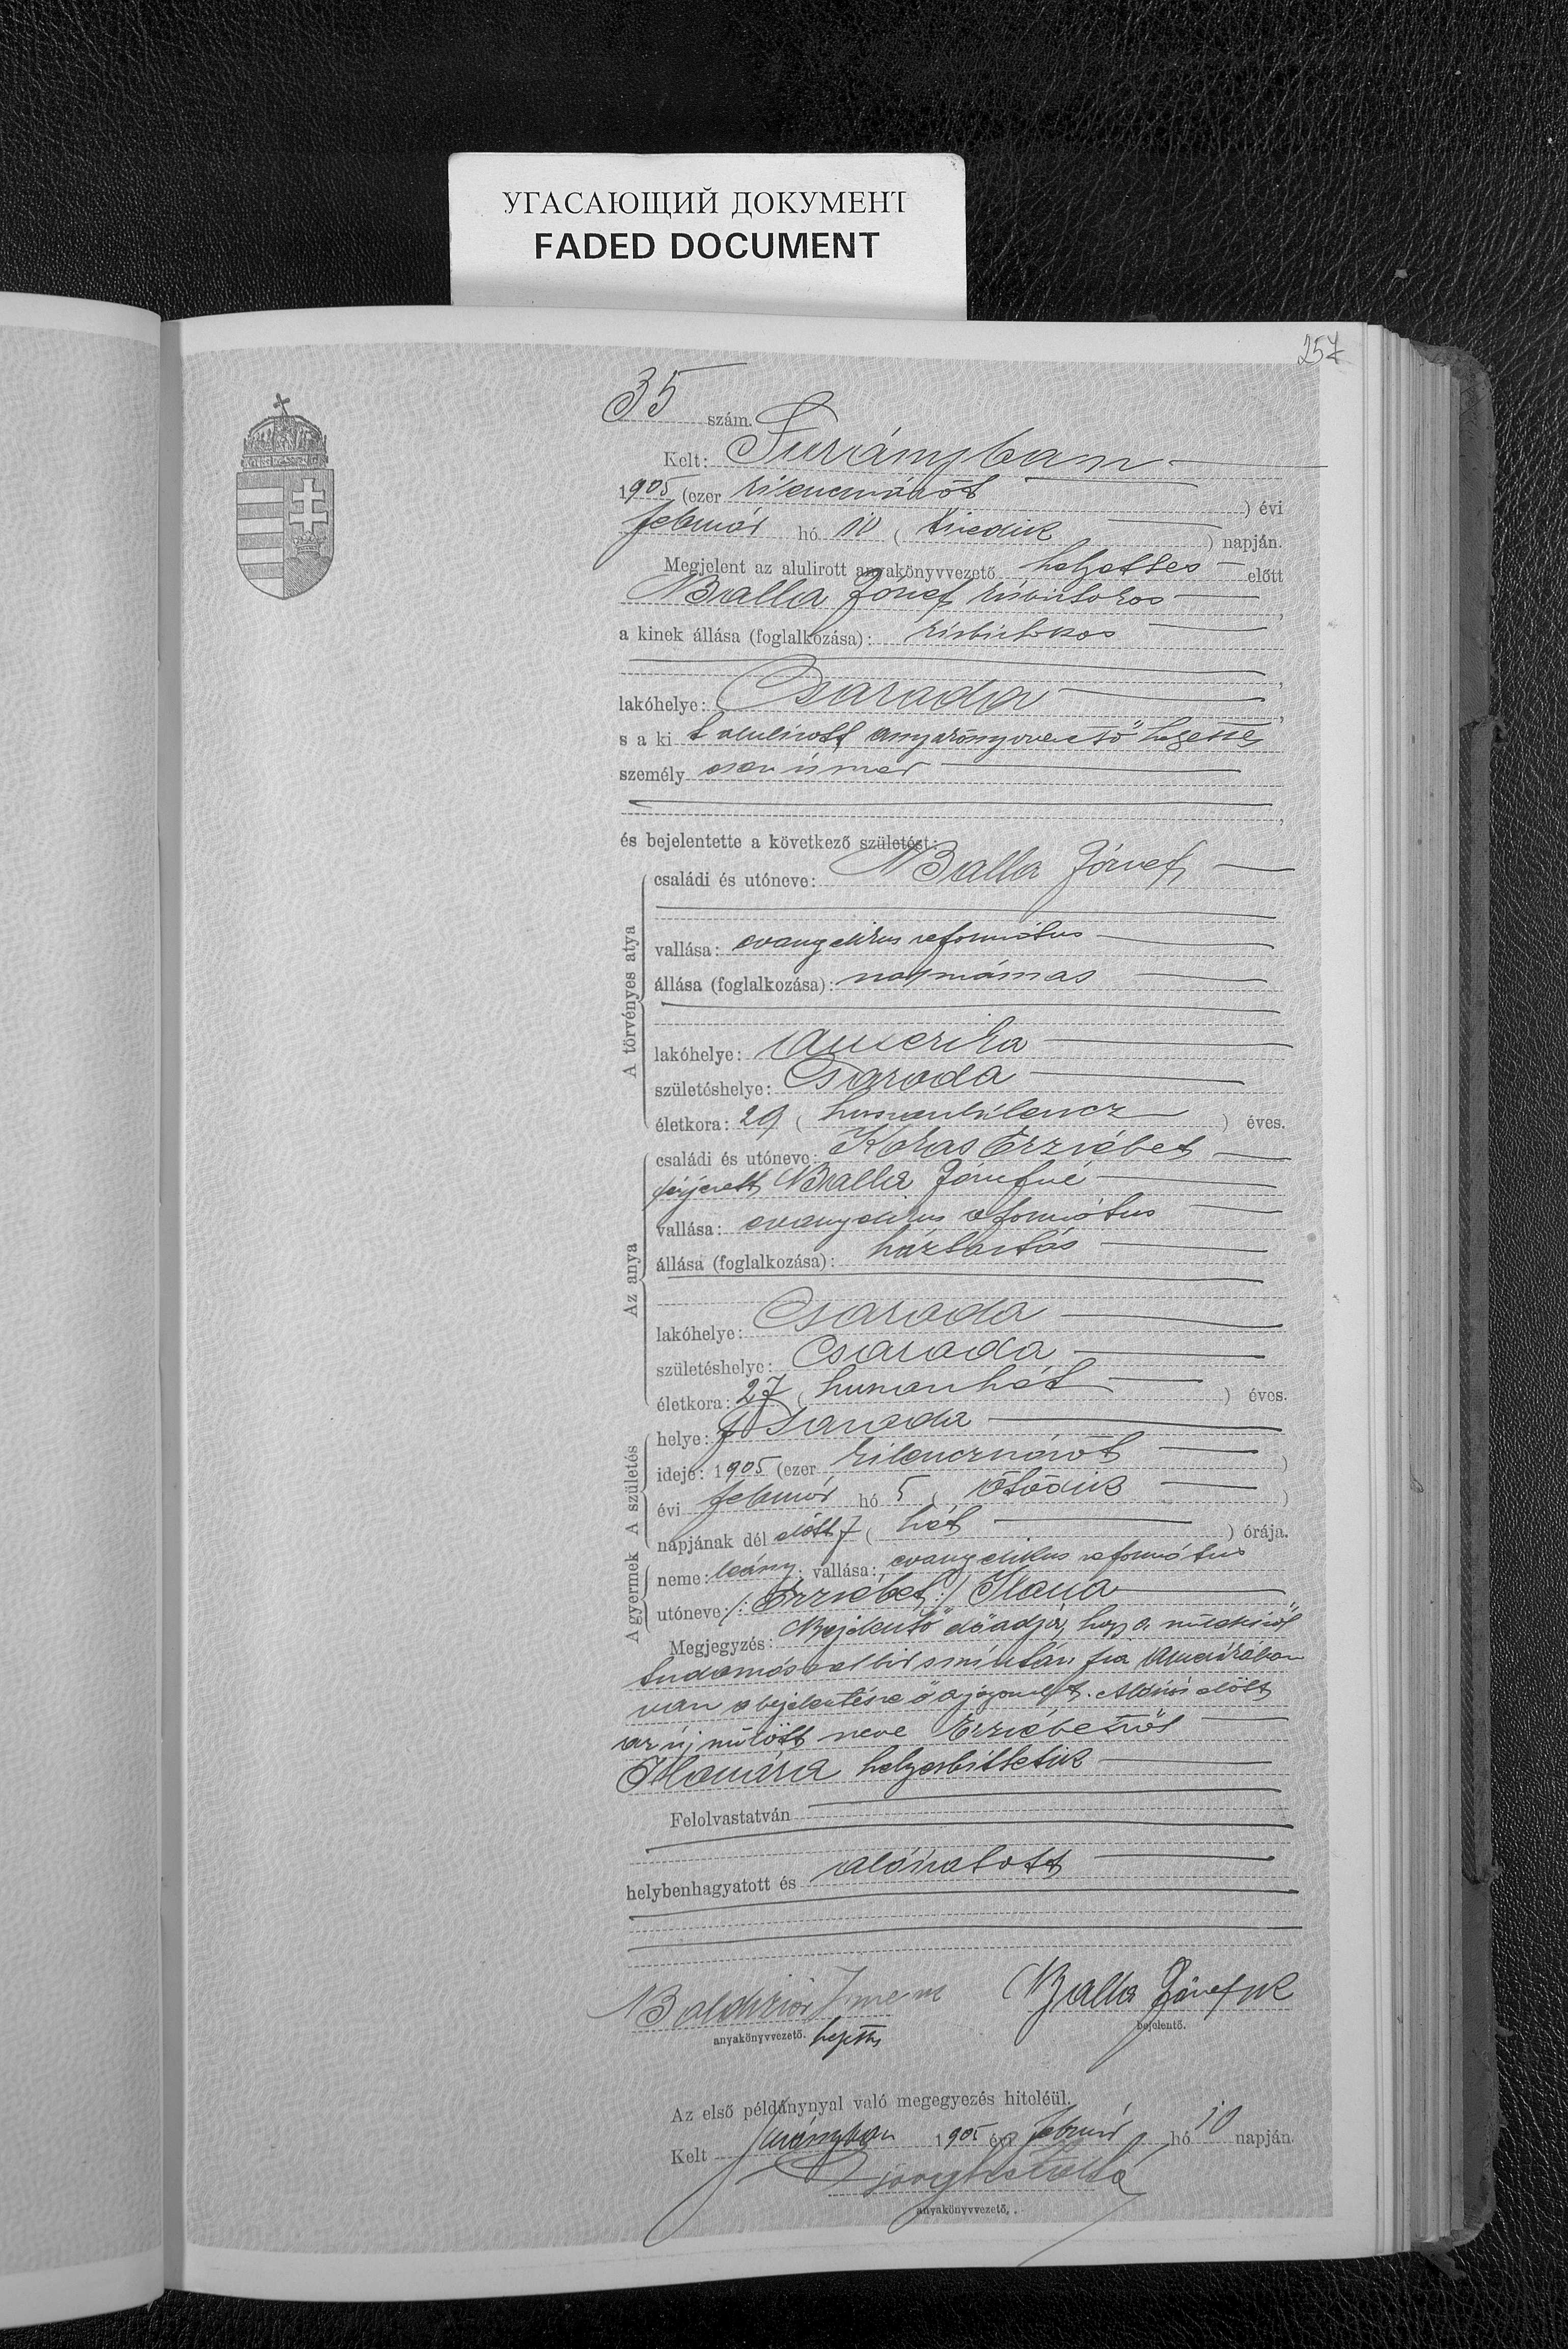 УГАСАЮЩИЙ ДОКУМЕНТ
FADED DOCUMENT
257
35 szám.
Kelt: Surányban
1905 (ezer kilenczszázöt) évi
február hó 10 (tizedik) napján.
Megjelent az alulirott anyakönyvvezető helyettes előtt
Balla József kisbirtokos,
a kinek állása (foglalkozása): kisbirtokos
,
lakóhelye: Csaroda,
s a ki t alulirott anyakönyvvezető helyettes
személy esen ismer
,
és bejelentette a következő születést:
A törvényes atya
családi és utóneve: Balla József
vallása: evangelikus református
állása (foglalkozása): napszámas
lakóhelye: Amerika
születéshelye: Csaroda
életkora: 29 (huszonkilencz) éves.
Az anya
családi és utóneve: Kokas Erzsébet
férjezett Balla Józsefné
vallása: evangelikus református
állása (foglalkozása): háztartás
lakóhelye: Csaroda
születéshelye: Csaroda
életkora: 27 (huszonhét) éves.
A születés
helye: Csaroda
ideje: 1905 (ezer kilenczszázöt)
évi február hó 5 (ötödik)
napjának dél előtt 7 (hét) órája.
A gyermek
neme: leány. vallása: evangelikus református
utóneve: /: Erzsébet :/ Ilona
Megjegyzés: Bejelentő előadja, hogy a születésről
tudomással bir s miután fia Amerikában
van a bejelentésre ő a jogosult. Aláirás előtt
az új szülött neve Erzsébetről
Ilonára helyesbittetik
Felolvastatván
helybenhagyatott és aláiratott
Imre Balla József sk
anyakönyvvezető. helyettes bejelentő.
Az első példánynyal való megegyezés hiteléül.
Kelt Surányban 1905 évi február hó 10 napján
anyakönyvvezető.